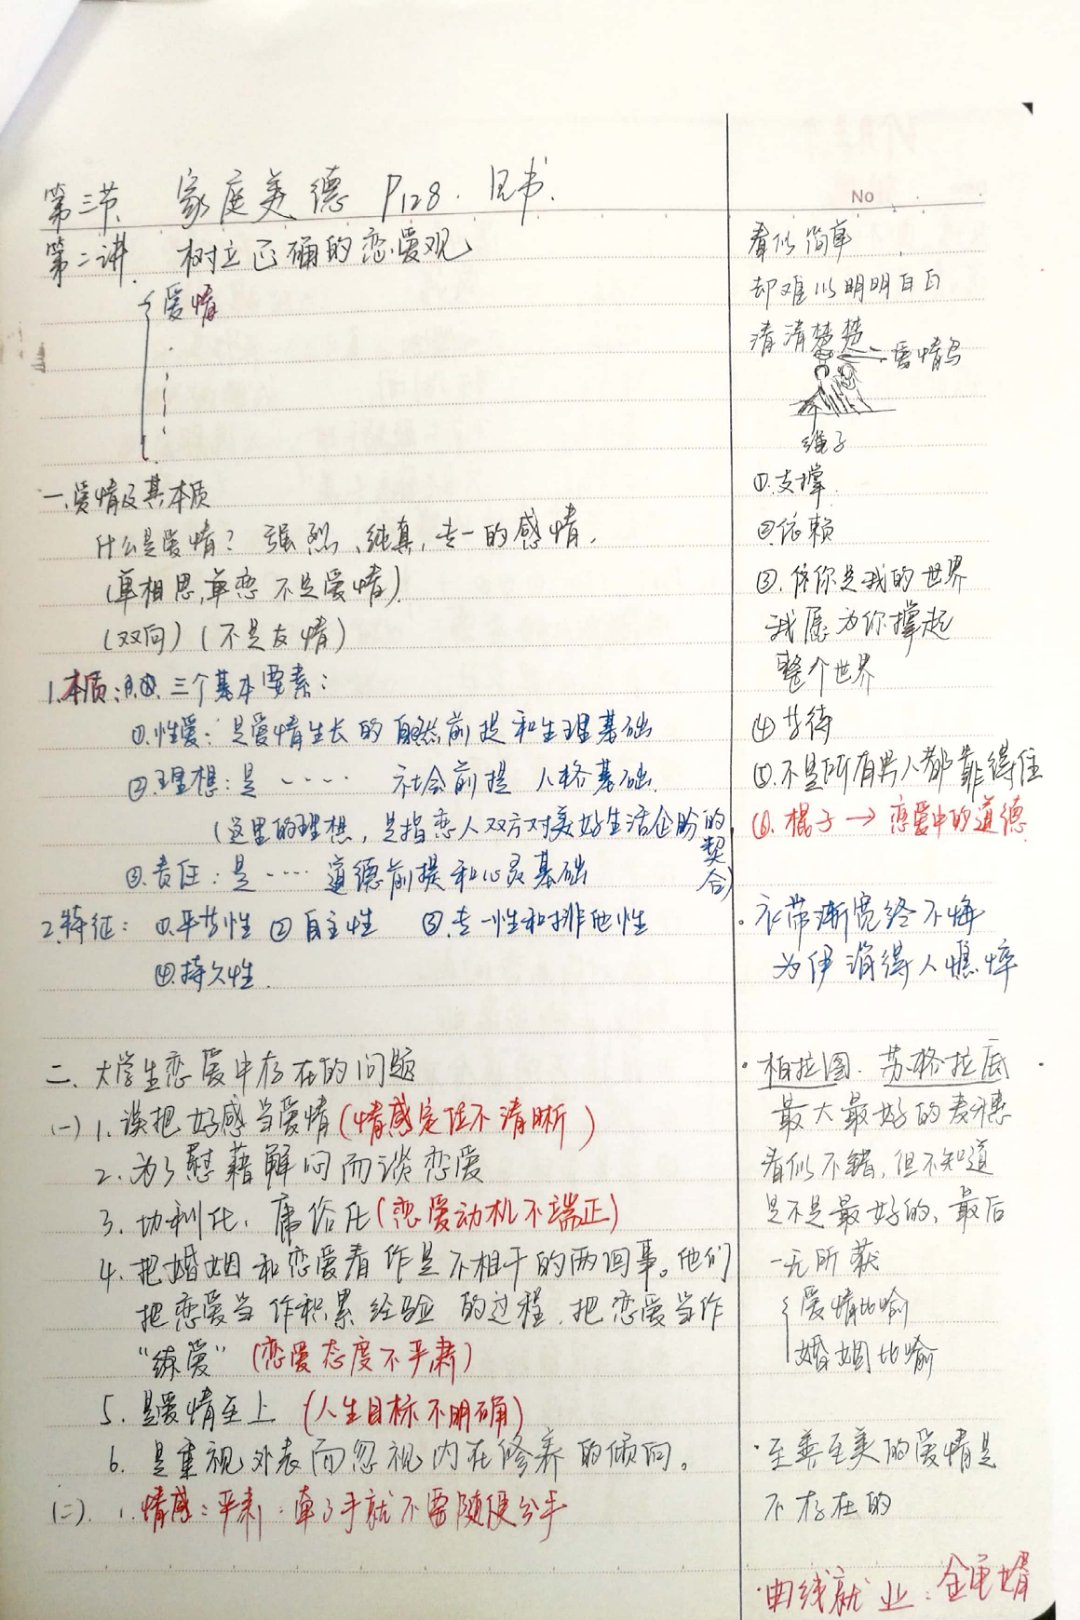 第三节 家庭美德 P128. 见书.
第二讲. 树立正确的恋爱观
爱情
一.爱情及其本质
什么是爱情? 强烈、纯真,专一的感情.
(单相思,单恋 不是爱情)
(双向) (不是友情)
1.本质: 三个基本要素:
①.性爱: 是爱情生长的自然前提和生理基础
②.理想: 是 ····· 社会前提 人格基础.
(这里的理想, 是指恋人双方对美好生活企盼的契合)
③.责任: 是 ····· 道德前提和心灵基础
2.特征: ①.平等性 ②自主性 ③.专一性和排他性
④.持久性.
二. 大学生恋爱中存在的问题
(一) 1. 误把好感当爱情 (情感定位不清晰)
2. 为了慰藉解闷而谈恋爱
3. 功利化. 庸俗化 (恋爱动机不端正)
4. 把婚姻和恋爱看作是不相干的两回事。他们
把恋爱当作积累经验的过程. 把恋爱当作
“练爱” (恋爱态度不严肃)
5. 是爱情至上 (人生目标不明确)
6. 是重视外表而忽视内在修养的倾向。
(二). 1. 情感: 严肃. 牵了手就不要随便分手
No
看似简单
却难以明明白白
清清楚楚
爱情鸟
绳子
①.支撑.
②.依赖
③. 你是我的世界
我愿为你撑起
整个世界
④ 等待
⑤.不是所有男人都靠得住
⑥. 棍子 → 恋爱中的道德
· 衣带渐宽终不悔
为伊消得人憔悴
· 柏拉图. 苏格拉底
最大最好的麦穗
看似不错, 但不知道
是不是最好的, 最后
一无所获
爱情比喻
婚姻比喻
· 至善至美的爱情是
不存在的
· 曲线就业: